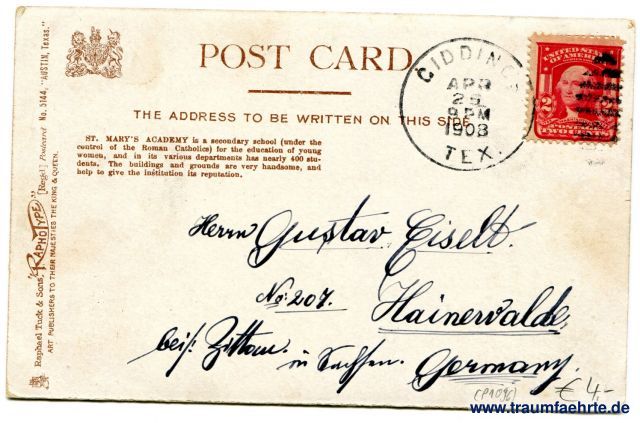 POST CARD
THE ADDRESS TO BE WRITTEN ON THIS SIDE
ST. MARY'S ACADEMY is a secondary school (under the
control of the Roman Catholics) for the education of young
women, and in its various departments has nearly 400 stu-
dents. The buildings and grounds are very handsome, and
help to give the institution its reputation.
Raphael Tuck & Sons' "RAPHOTYPE" [Regd.] Postcard No. 5144, "AUSTIN, Texas."
ART PUBLISHERS TO THEIR MAJESTIES THE KING & QUEEN.
GIDDINGS
APR
25
8 PM
1908
TEX.
UNITED STATES
OF AMERICA
2
Herrn Gustav Eiselt.
No: 207. Hainewalde,
bei Zittau. in Sachsen. Germany.
€ 4,-
www.traumfaehrte.de